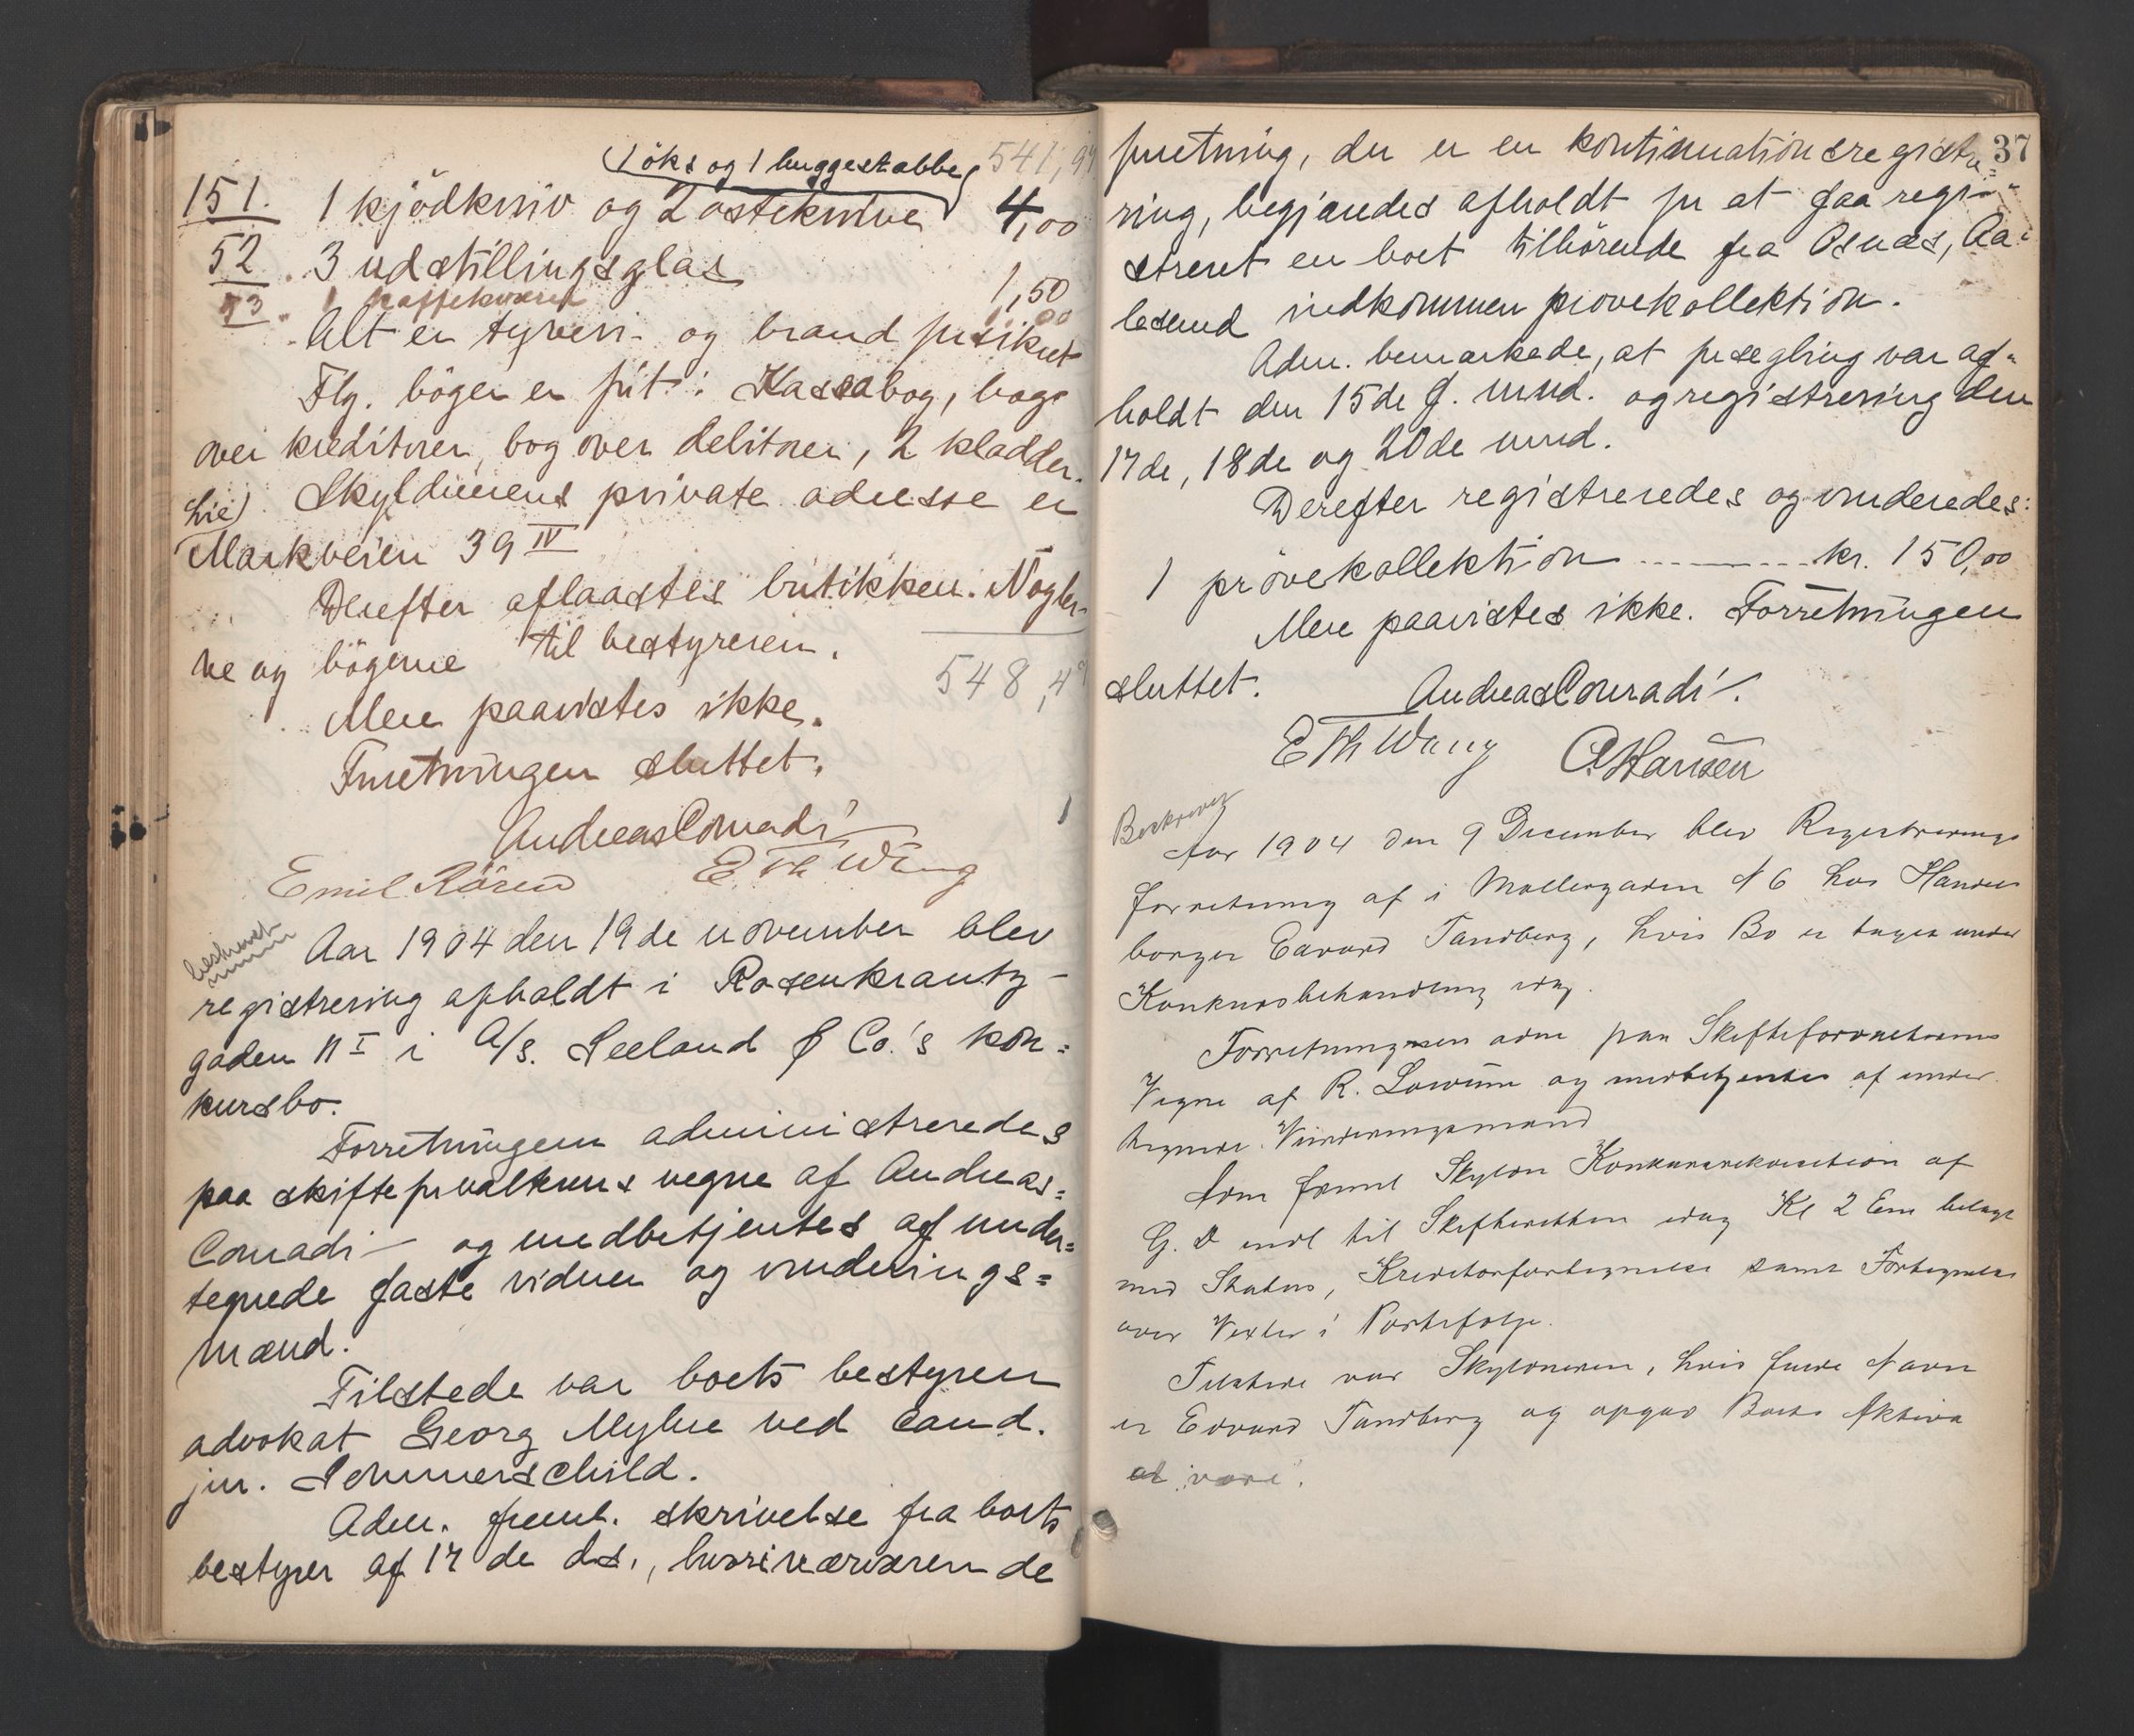 1 öks og 1 huggestabbe 541,99
151. 1 kjödkniv og 2 osteknive 4,00
52 3 udstillingsglas 1,50
53 1 kaffekværn 1,00
Alt er tyveri- og brand forsikret
Flg. böger er fört: Kassabog, bog
over kreditorer, bog over debitorer, 2 kladder.
Skyldnerens private adresse er
Markveien 39 IV
Derefter aflaastes butikken. Nögler-
ne og bögerne til bestyreren.
548,49
Mere paavistes ikke.
Forretningen sluttet.
Andreas Conradi
Emil Rören E. Th Wang
beskrevet
Aar 1904 den 19de november blev
registrering afholdt i Rosenkrantz-
gaden 11 I i A/s. Seeland & Co.'s kon=
kursbo.
Forretningen administreredes
paa skifteforvalterens vegne af Andreas=
Conradi – og medbetjentes af under=
tegnede faste vidner og vurderings=
mænd.
Tilstede var boets bestyrer
advokat Georg Mylne ved cand.
jur. Sommerschild.
Adm. freml. skrivelse fra boets
bestyrer af 17de ds., hvori nærværende
37
forretning, der er en kontinuationsregistre=
ring, begjæredes afholdt for at faa regi-
streret en boet tilhörende fra Osnæs, Aa=
lesund indkommen prövekollektion.
Adm. bemærkede, at forsegling var af=
holdt den 15de f. mnd. og registrering den
17de, 18de og 20de mnd.
Derefter registreredes og vurderedes:
1 prövekollektion ........ kr. 150,00
Mere paavistes ikke. Forretningen
sluttet. Andreas Conradi.
E Th Wang A Hansen
Beskrevet
Aar 1904 den 9 December blev Registrerings
forretning af i Møllergaden N 6 hos Handels
borger Edvard Tandberg, hvis Bo er tagen under
Konkursbehandling idag.
Forretningen adm paa Skifteforvalterens
Vegne af R. og medbetjentes af under
tegnede Vurderingsmænd
Som freml Skyldn Konkursrekvisition af
G. D indl til Skifteretten idag Kl 2 Em belagt
med Status, Kreditorfortegnelse samt Fortegnelse
over Vexler i Portefølje.
Tilstede var Skyldneren, hvis fulde Navn
er Edvard Tandberg og opgav Boets Aktiva
at være: